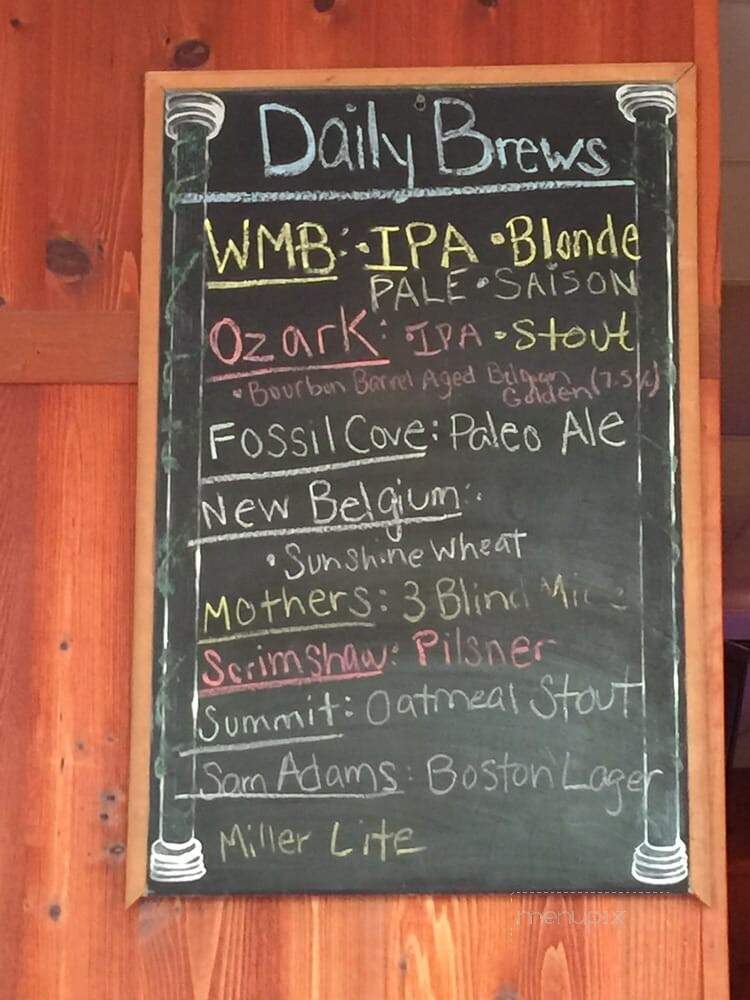 Daily Brews
WMB: •IPA •Blonde
PALE • SAISON
Ozark: •IPA •Stout
•Bourbon Barrel Aged Belgian
Golden (7.5%)
Fossil Cove: Paleo Ale
New Belgium:
•Sunshine Wheat
Mothers: 3 Blind Mice
Scrimshaw: Pilsner
Summit: Oatmeal Stout
Sam Adams: Boston Lager
Miller Lite
menupix